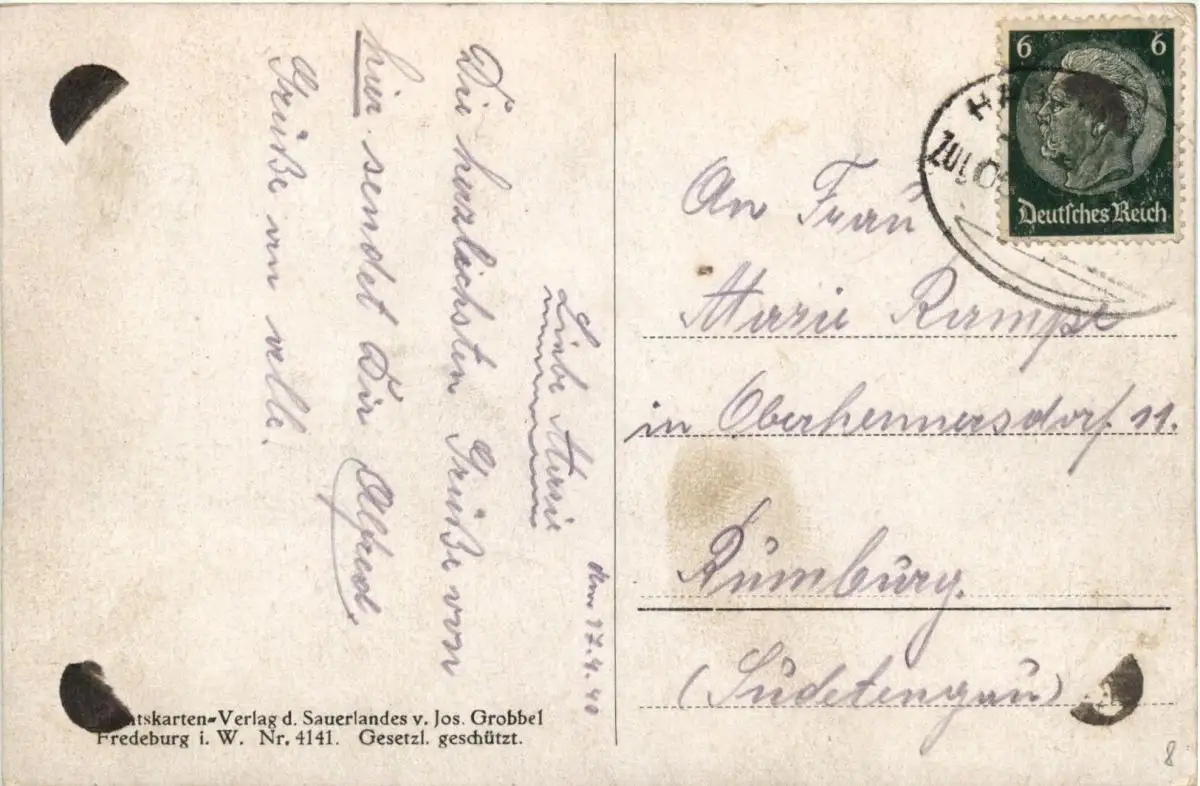 den 17.4.40
Liebe Marie
Die herzlichsten Grüße von
hier sendet Dir Alfred.
Grüße an velle!
6 6
Deutsches Reich
ZUG
An Frau
Marie Rampe
in Oberhennersdorf 11.
Rumburg.
(Sudetengau)
tskarten-Verlag d. Sauerlandes v. Jos. Grobbel
Fredeburg i. W. Nr. 4141. Gesetzl. geschützt.
8